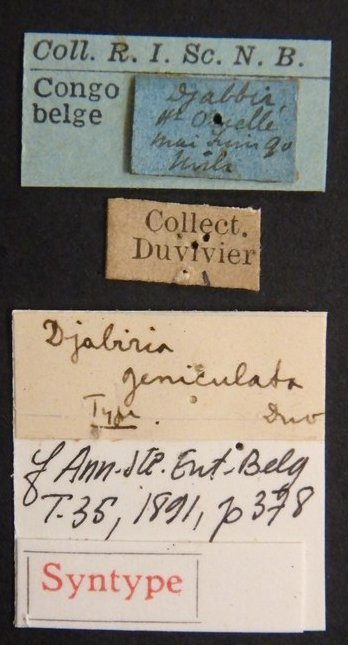 Coll. R. I. Sc. N. B.
Congo
belge
Djabbir,
Ht Ouelle
mai Juin 90
Collect.
Duvivier
Djabiria
geniculata
Type. Duv
cf Ann. Ste. Ent. Belg
T. 35, 1891, p 378
Syntype